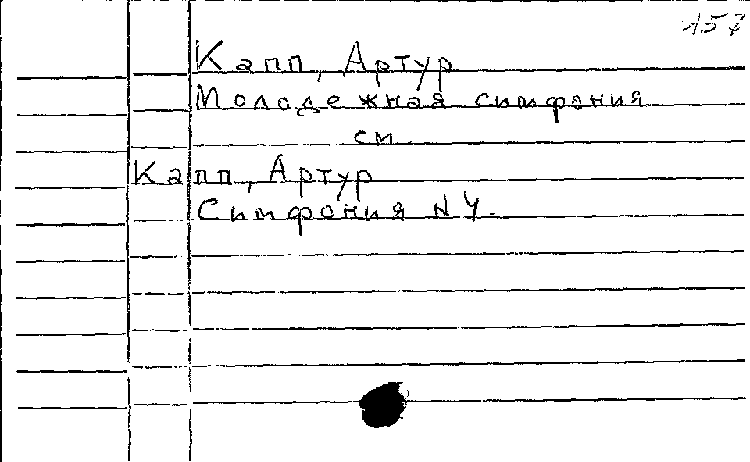 157
Капп, Артур
Молодежная симфония
см.
Капп, Артур
Симфония N 4.